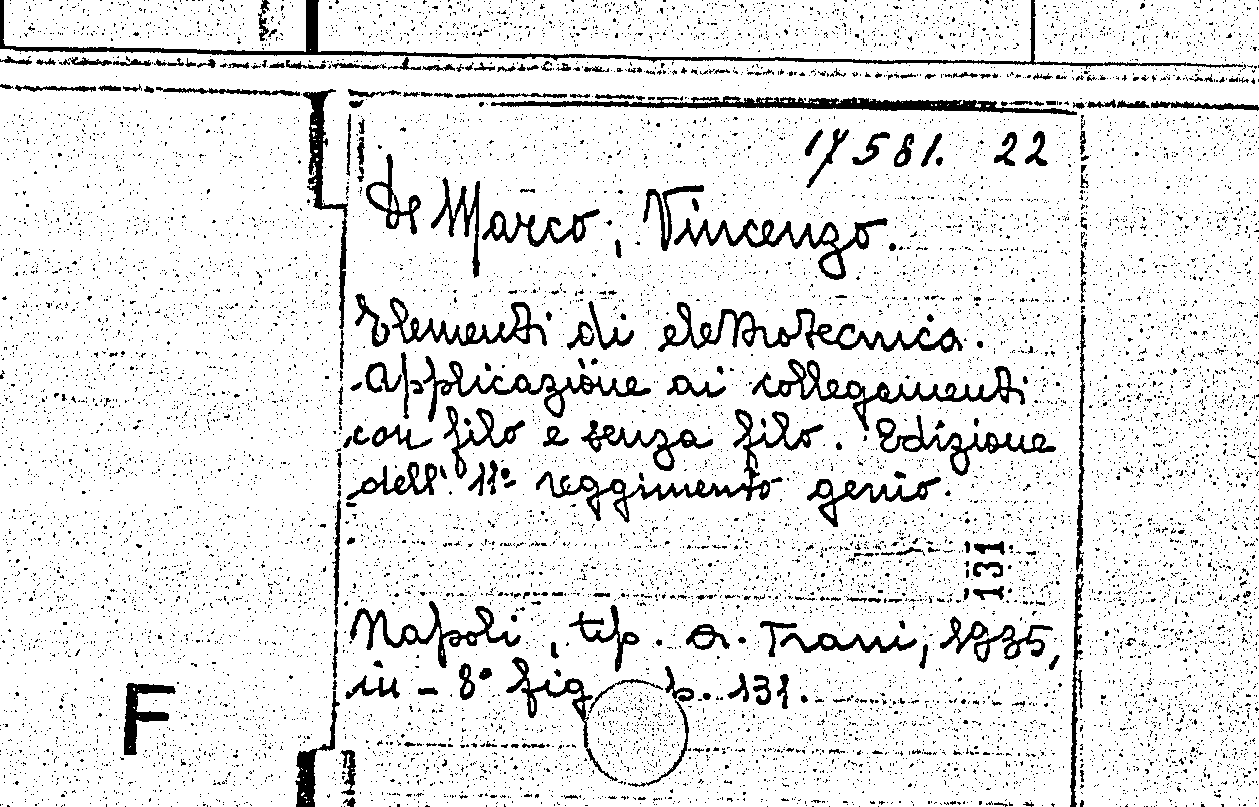 17581. 22
de Marco, Vincenzo.
Elementi di elettrotecnica.
Applicazione ai collegamenti
con filo e senza filo. Edizione
dell' 11º reggimento genio.
131
Napoli, tip. A. Trani, 1935,
in-8º fig p. 131.
F